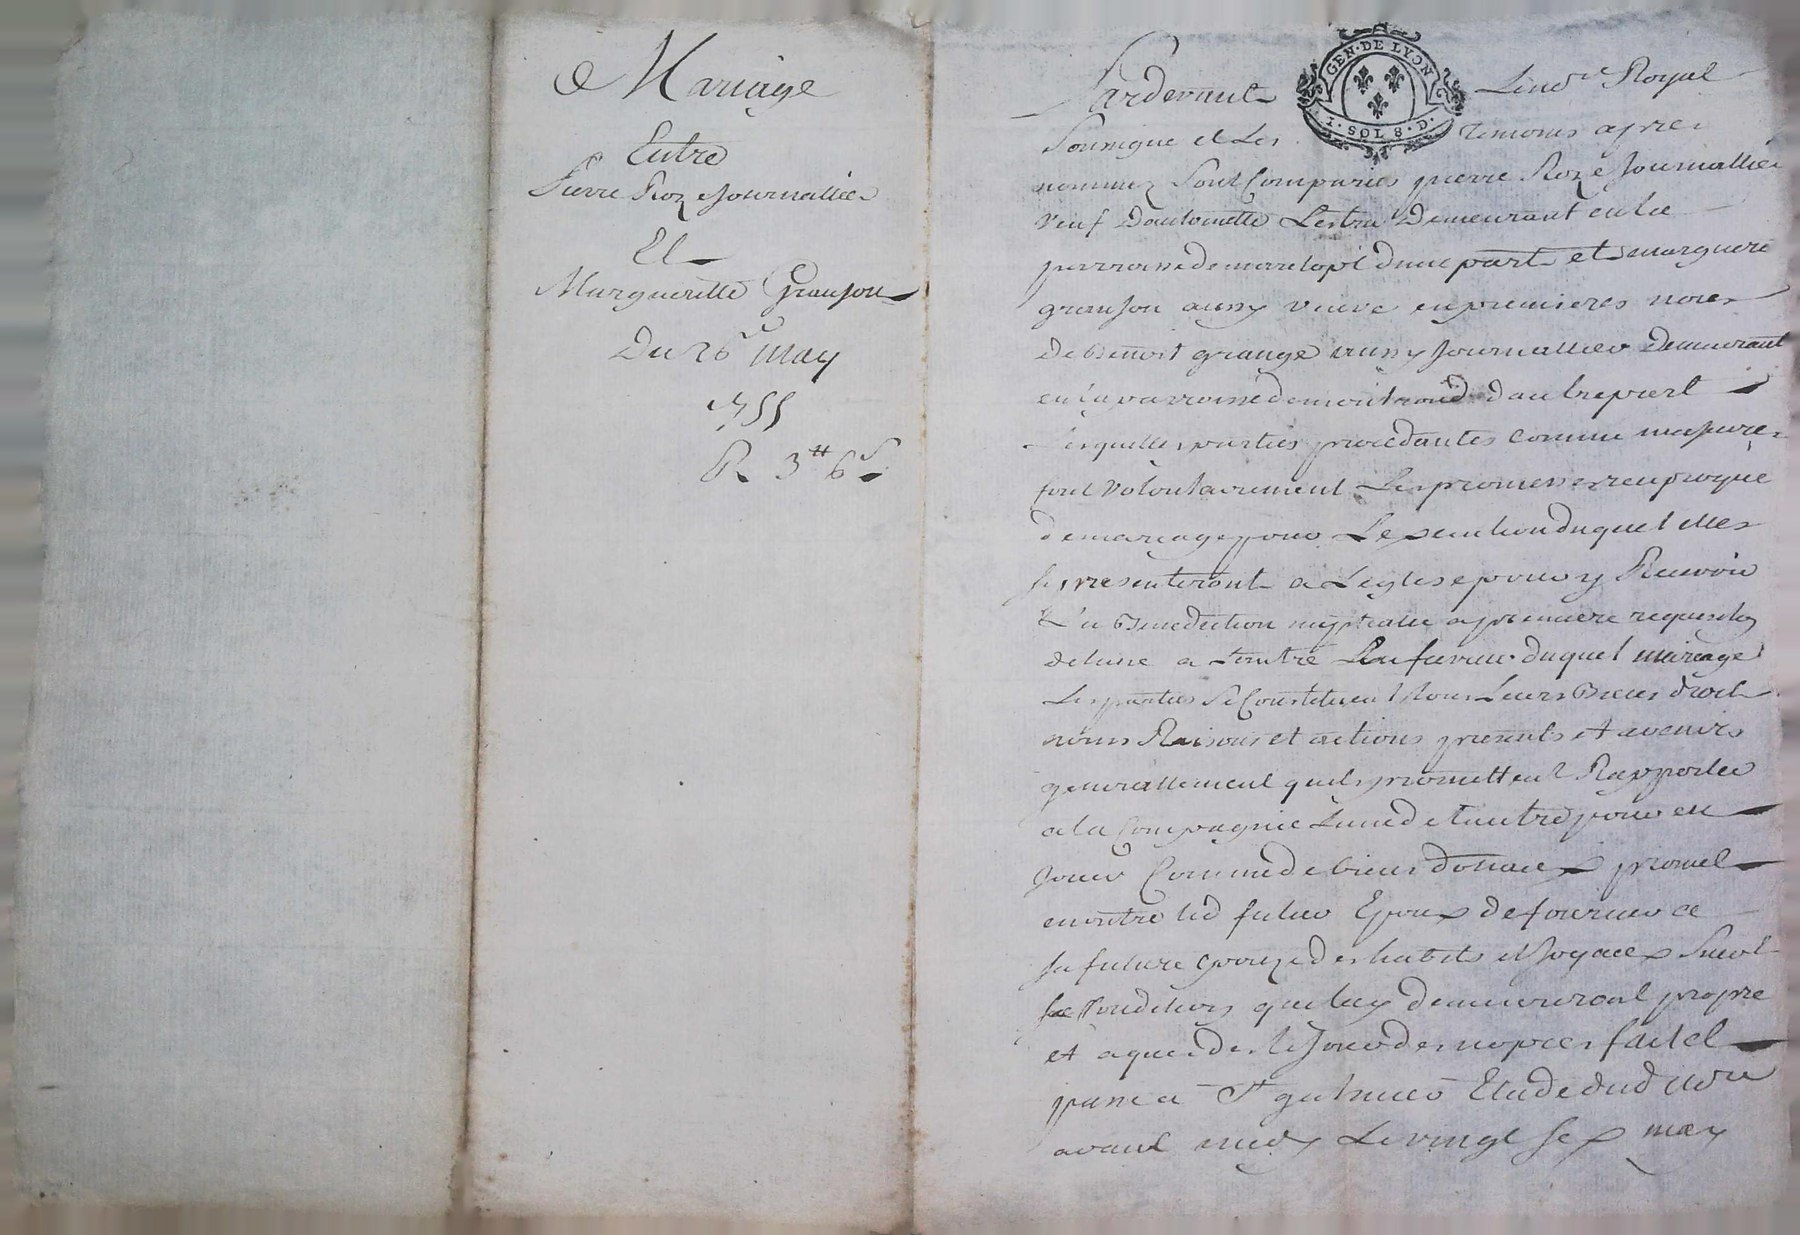 Mariage
Entre
Pierre Roze Journallier
Et
Margueritte Granjon
Du 26e May
1755
R 3# 6s
GEN·DE LYON
1·SOL 8·D·
Pardevant Le nore Royal
Soussigne et Les Temoins apres
nommez Sont Comparus pierre Roze Journallier
veuf Dantoinette Lestra Demeurant en la
parroisse de marclopt dune part et marguerite
granjon aussy veuve en premieres noces
De Benoit grange aussy Journallier Demeurant
en la parroisse de montrond dautre part
Lesquelles parties procedantes comme majeures
font volontairement Les promesses reciproque
de mariage pour Lexecution duquel elles
se presenteront a Leglise pour y Recevoir
La Benediction nuptialle a premiere requisition
de lune a Lautre En faveur duquel mariage
Les parties Se Constituent Tous Leurs Biens droits
noms Raisons et actions presents et avenirs
generallement quils promettent Rapporter
a la Compagnie Lun de Lautre pour en
Jouir Comme de biens dotaux promet
en outre led futur Epoux de fournir a
sa future epouze des habits et Joyaux Suivant
sa Condition que luy demeureront propre
et aquis des le Jour des nopces fait et
passé a St galmier Etude dud nore
avant midy Le vingt six may